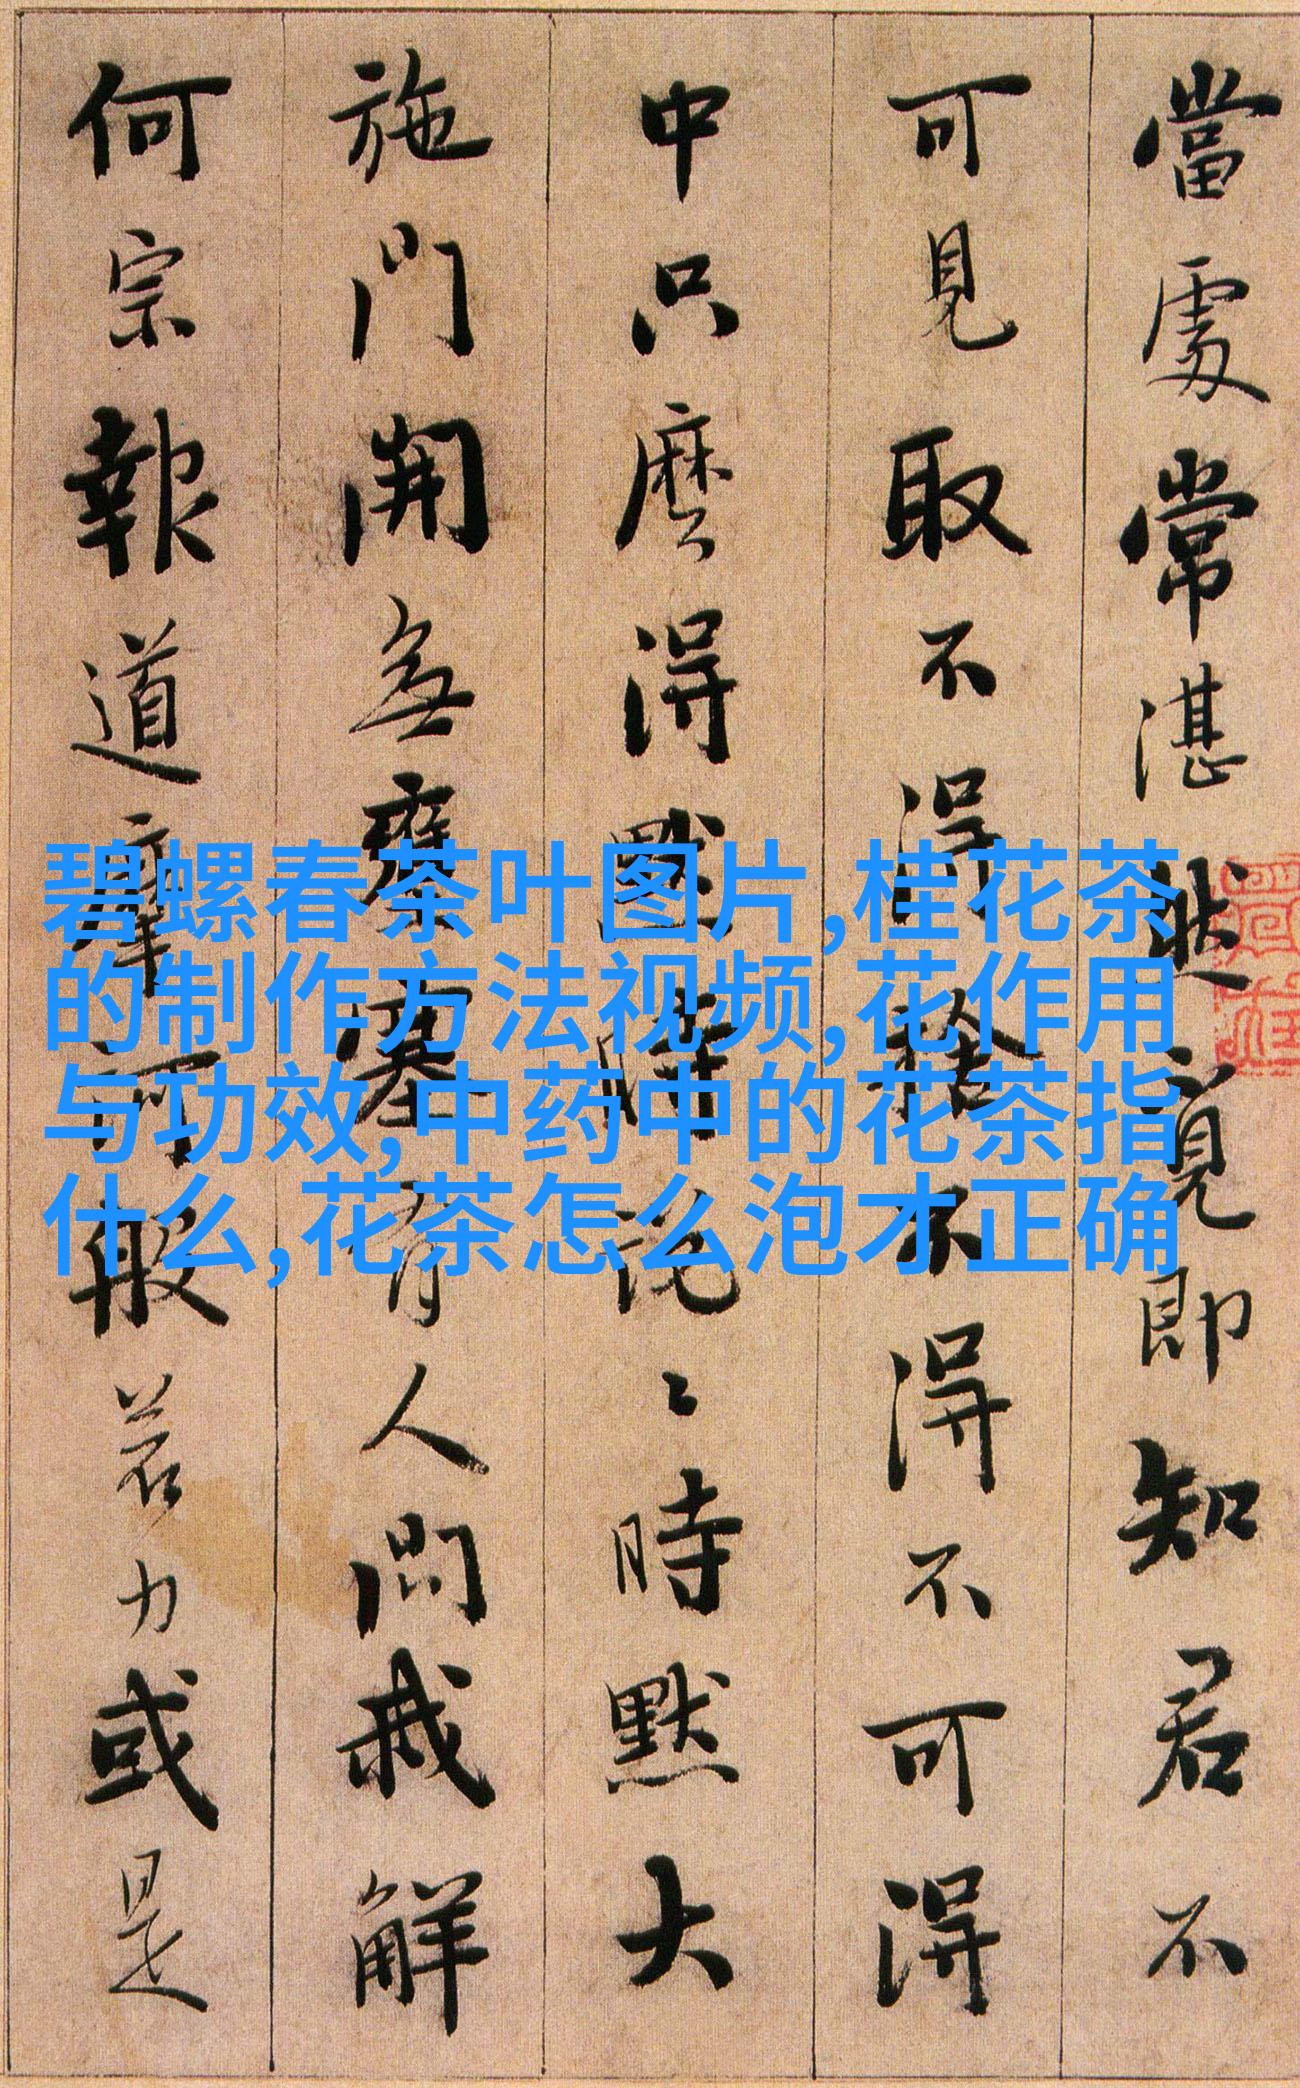 當處常湛然覓即知君不
可見取不得捨不得不可得
中只麼得默時說〻時默大
施門開無壅塞有人問我解
何宗報道摩訶般若力或是
碧螺春茶叶图片,桂花茶
的制作方法视频,花作用
与功效,中药中的花茶指
什么,花茶怎么泡才正确